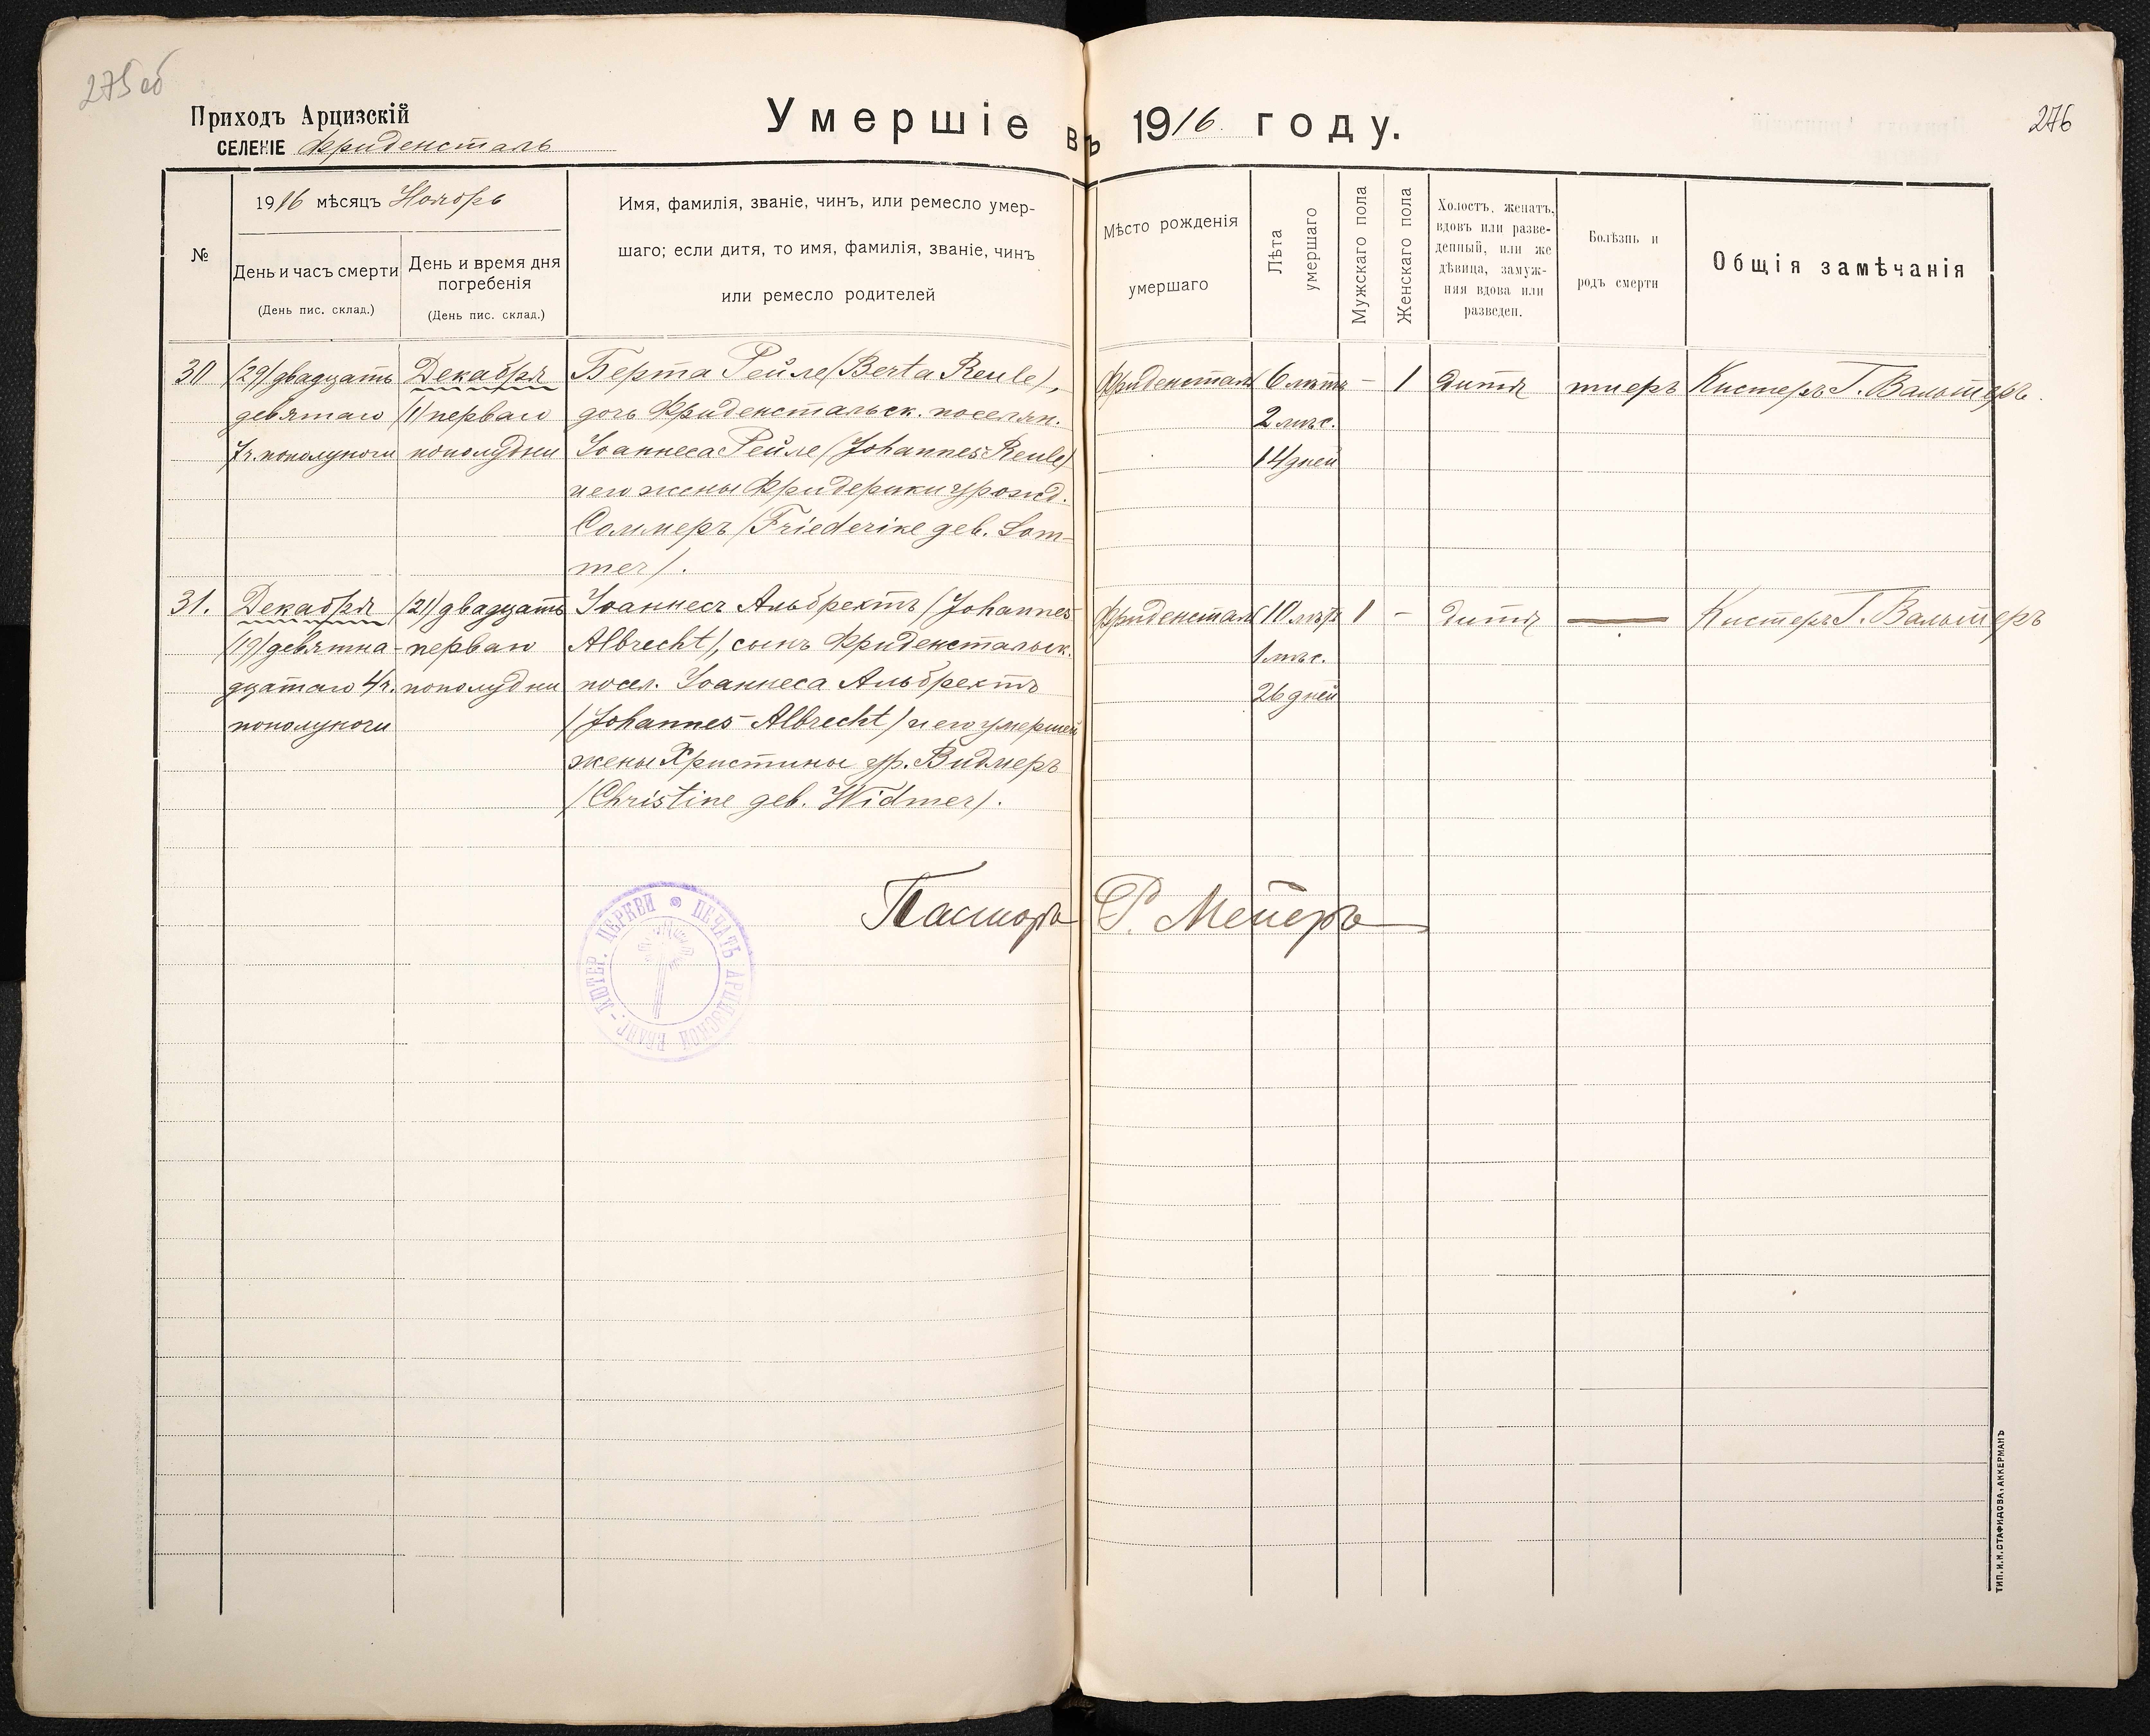 275 об
Приходъ Арцизскій
СЕЛЕНІЕ Фриденсталь
Умершіе въ 1916 году.
276
№
1916 мѣсяцъ Ноябрь
День и часъ смерти
(День пис. склад.)
День и время дня
погребенія
(День пис. склад.)
Имя, фамилія, званіе, чинъ, или ремесло умер-
шаго; если дитя, то имя, фамилія, званіе, чинъ
или ремесло родителей
Мѣсто рожденія
умершаго
Лѣта
умершаго
Мужскаго пола
Женскаго пола
Холостъ, женатъ,
вдовъ или разве-
денный, или же
дѣвица, замуж-
няя вдова или
разведен.
Болѣзнь и
родъ смерти
Общія замѣчанія
30 (29) двадцать Декабря Берта Рейле (Berta Reule), Фриденсталь 6 лѣтъ - 1 Дитя тиеръ Кистеръ Г. Вальтеръ.
девятаго (1) перваго дочь Фриденстальск. поселян. 2 мѣс.
7 ч. пополуночи пополудни Іоаннеса Рейле (Johannes Reule) 14 дней
и его жены Фридерики урожд.
Соммеръ (Friederike geb. Som-
mer).
31. Декабря (21) двадцать Іоаннесъ Альбрехтъ (Johannes Фриденсталь 10 лѣтъ 1 - Дитя — Кистеръ Г. Вальтеръ
(19) девятна- перваго Albrecht), сынъ Фриденстальск. 1 мѣс.
дцатаго 4 ч. пополудни посел. Іоаннеса Альбрехтъ 26 дней
пополуночи (Johannes Albrecht) и его умершей
жены Христины ур. Видмеръ
(Christine geb. Widmer).
Пасторъ Р. Мейеръ
ПЕЧАТЬ АРЦИЗСКОЙ ЕВАНГ.-ЛЮТЕР. ЦЕРКВИ
ТИП. И. Н. СТАФИДОВА, АККЕРМАНЪ